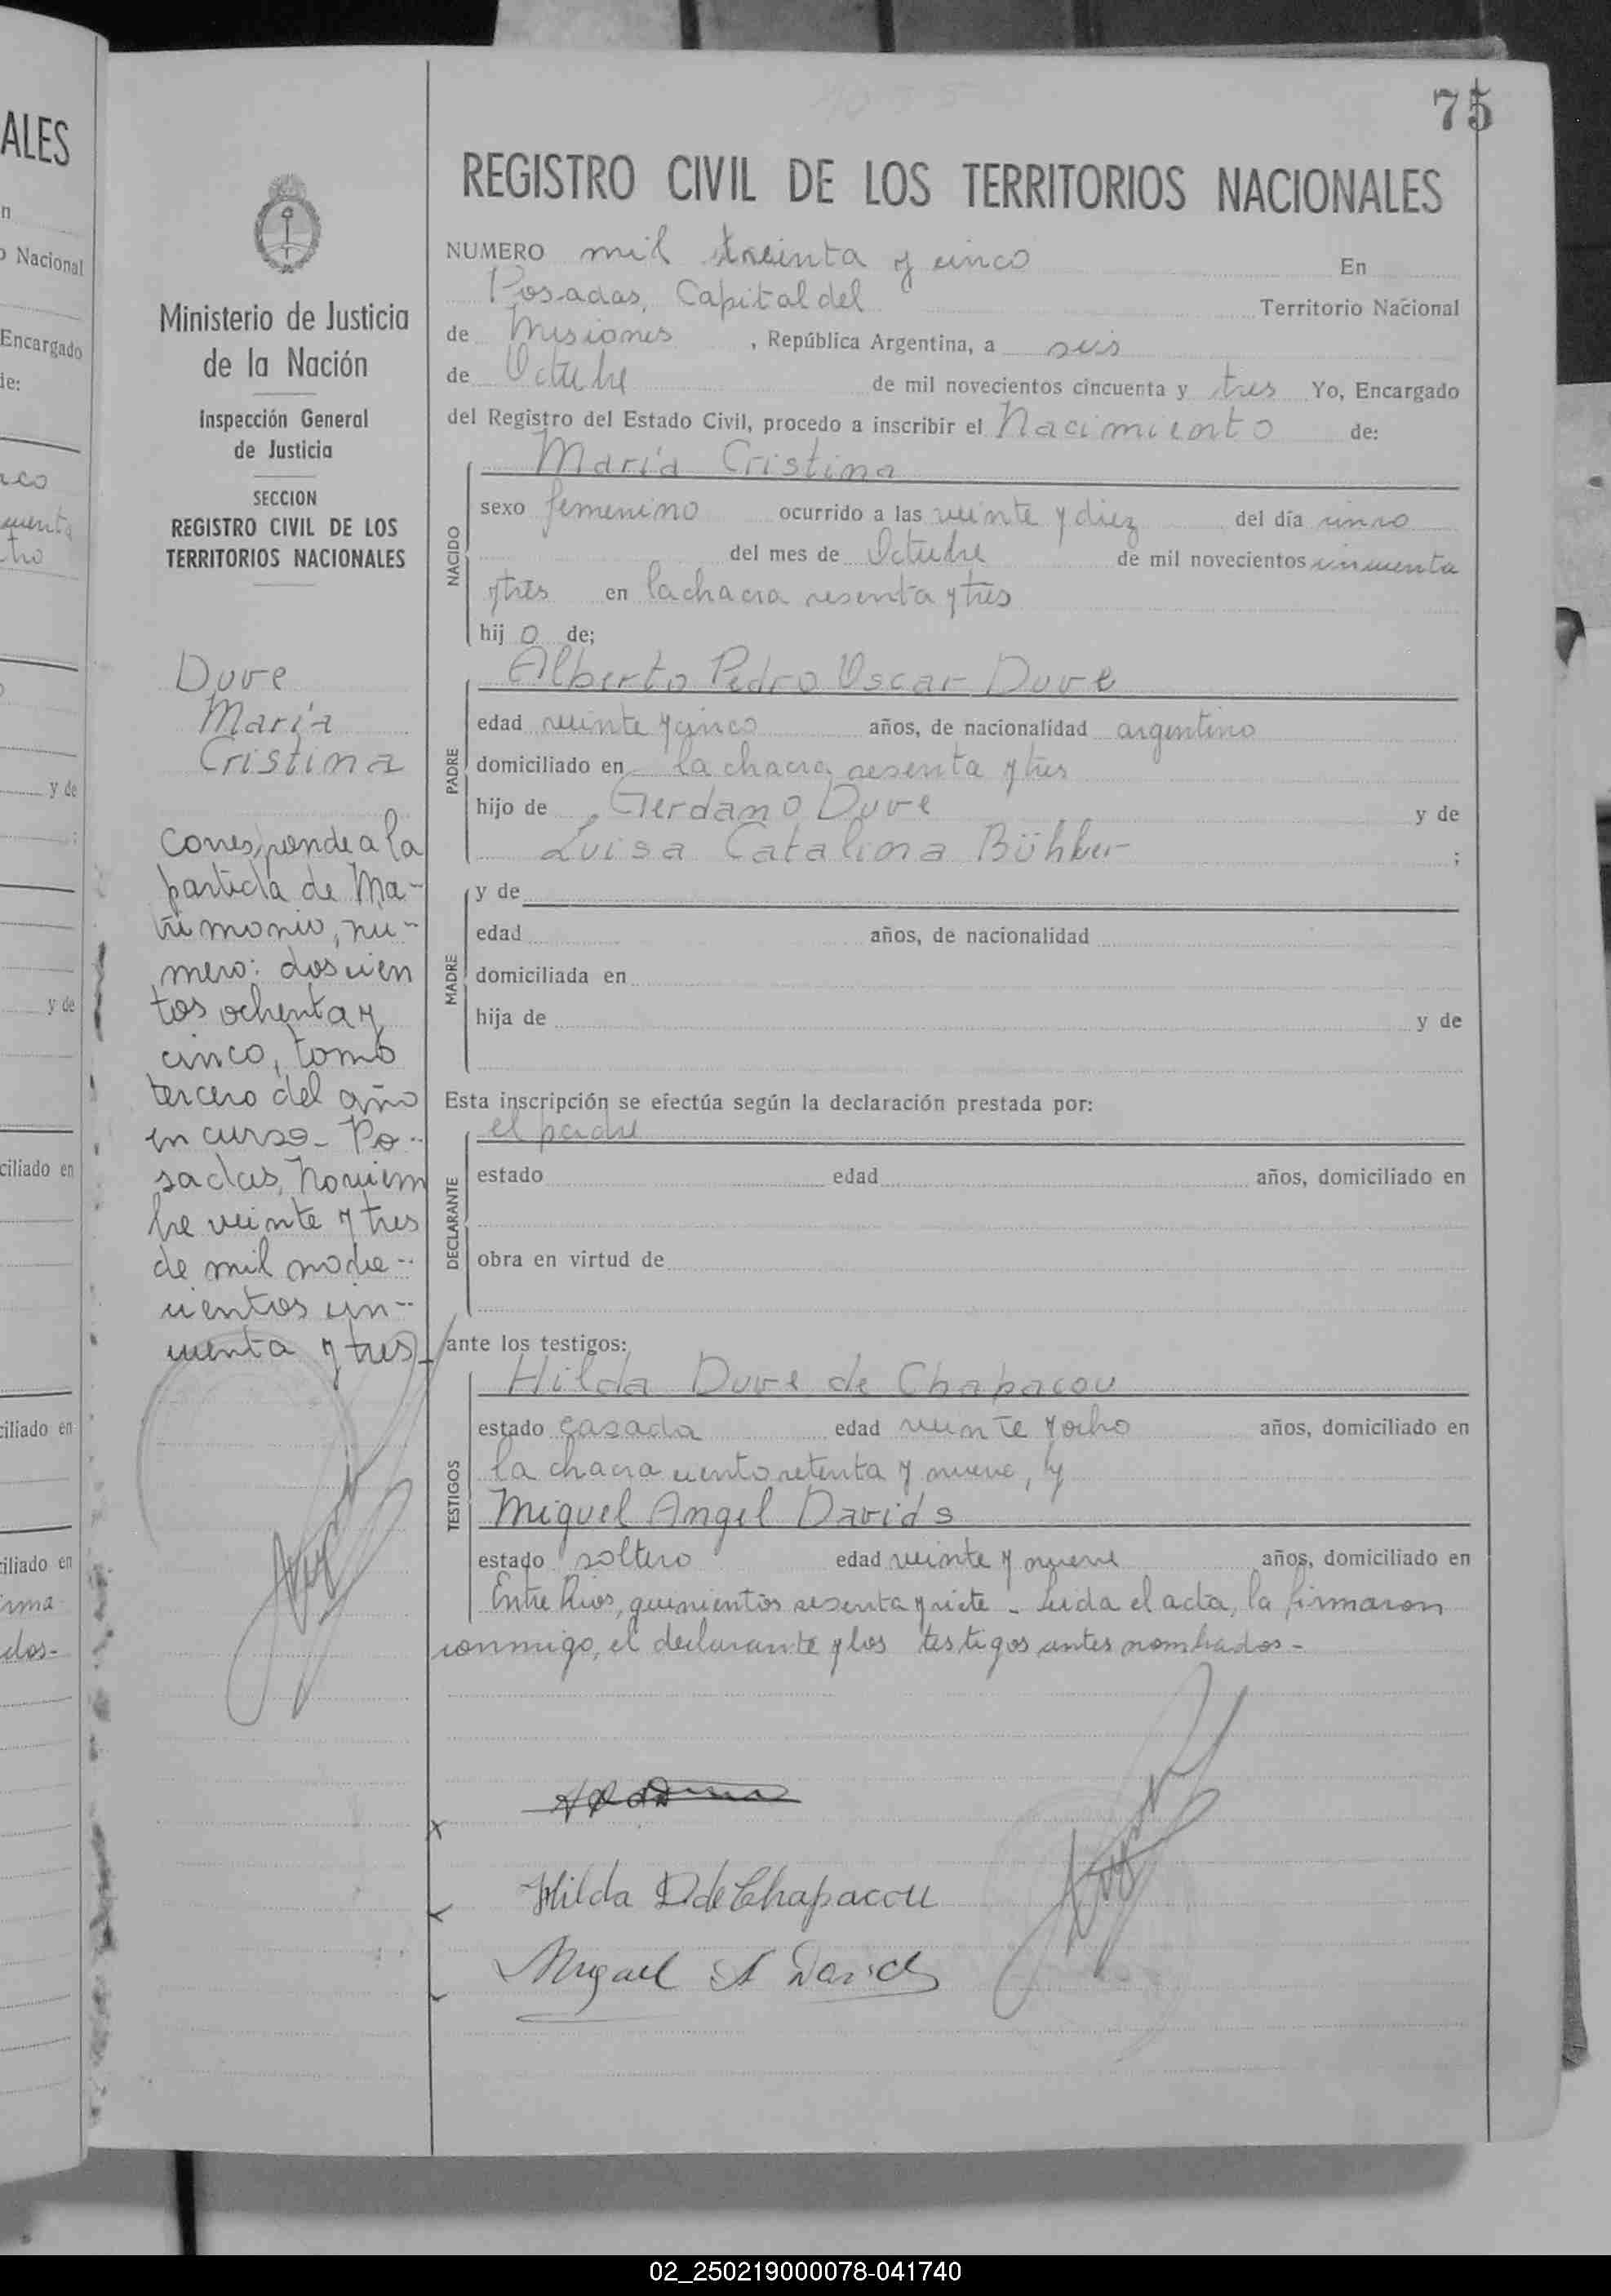 ALES
n
o Nacional
Encargado
de:
y de
y de
ciliado en
ciliado en
ciliado en
dos-
75
Ministerio de Justicia
de la Nación
Inspección General
de Justicia
SECCION
REGISTRO CIVIL DE LOS
TERRITORIOS NACIONALES
Duve
María
Cristina
Corresponde a la
partida de Ma-
trimonio, nu-
mero: doscien
tos ochenta y
cinco, tomo
tercero del año
en curso- Po-
sadas, Noviem
bre veinte y tres
de mil nove-
cientos cin-
cuenta y tres-
REGISTRO CIVIL DE LOS TERRITORIOS NACIONALES
NUMERO mil treinta y cinco En
Posadas, Capital del Territorio Nacional
de Misiones , República Argentina, a seis
de Octubre de mil novecientos cincuenta y tres Yo, Encargado
del Registro del Estado Civil, procedo a inscribir el Nacimiento de:
NACIDO
María Cristina
sexo femenino ocurrido a las veinte y diez del día cinco
del mes de Octubre de mil novecientos cincuenta
y tres en la chacra sesenta y tres
hij o de;
PADRE
Alberto Pedro Oscar Duve
edad veinte y cinco años, de nacionalidad argentino
domiciliado en la chacra sesenta y tres
hijo de Gerdano Duve y de
Luisa Catalina ;
MADRE
y de
edad años, de nacionalidad
domiciliada en
hija de y de
Esta inscripción se efectúa según la declaración prestada por:
DECLARANTE
el padre
estado edad años, domiciliado en
obra en virtud de
ante los testigos:
TESTIGOS
Hilda Duve de Chapacou
estado casada edad veinte y ocho años, domiciliado en
la chacra ciento setenta y nueve, y
Miguel Angel Davids
estado soltero edad veinte y nueve años, domiciliado en
Entre Rios, quinientos sesenta y siete - Leida el acta, la firmaron
conmigo, el declarante y los testigos antes nombrados-
Hilda D de Chapacou
Miguel A Davids
02_250219000078-041740